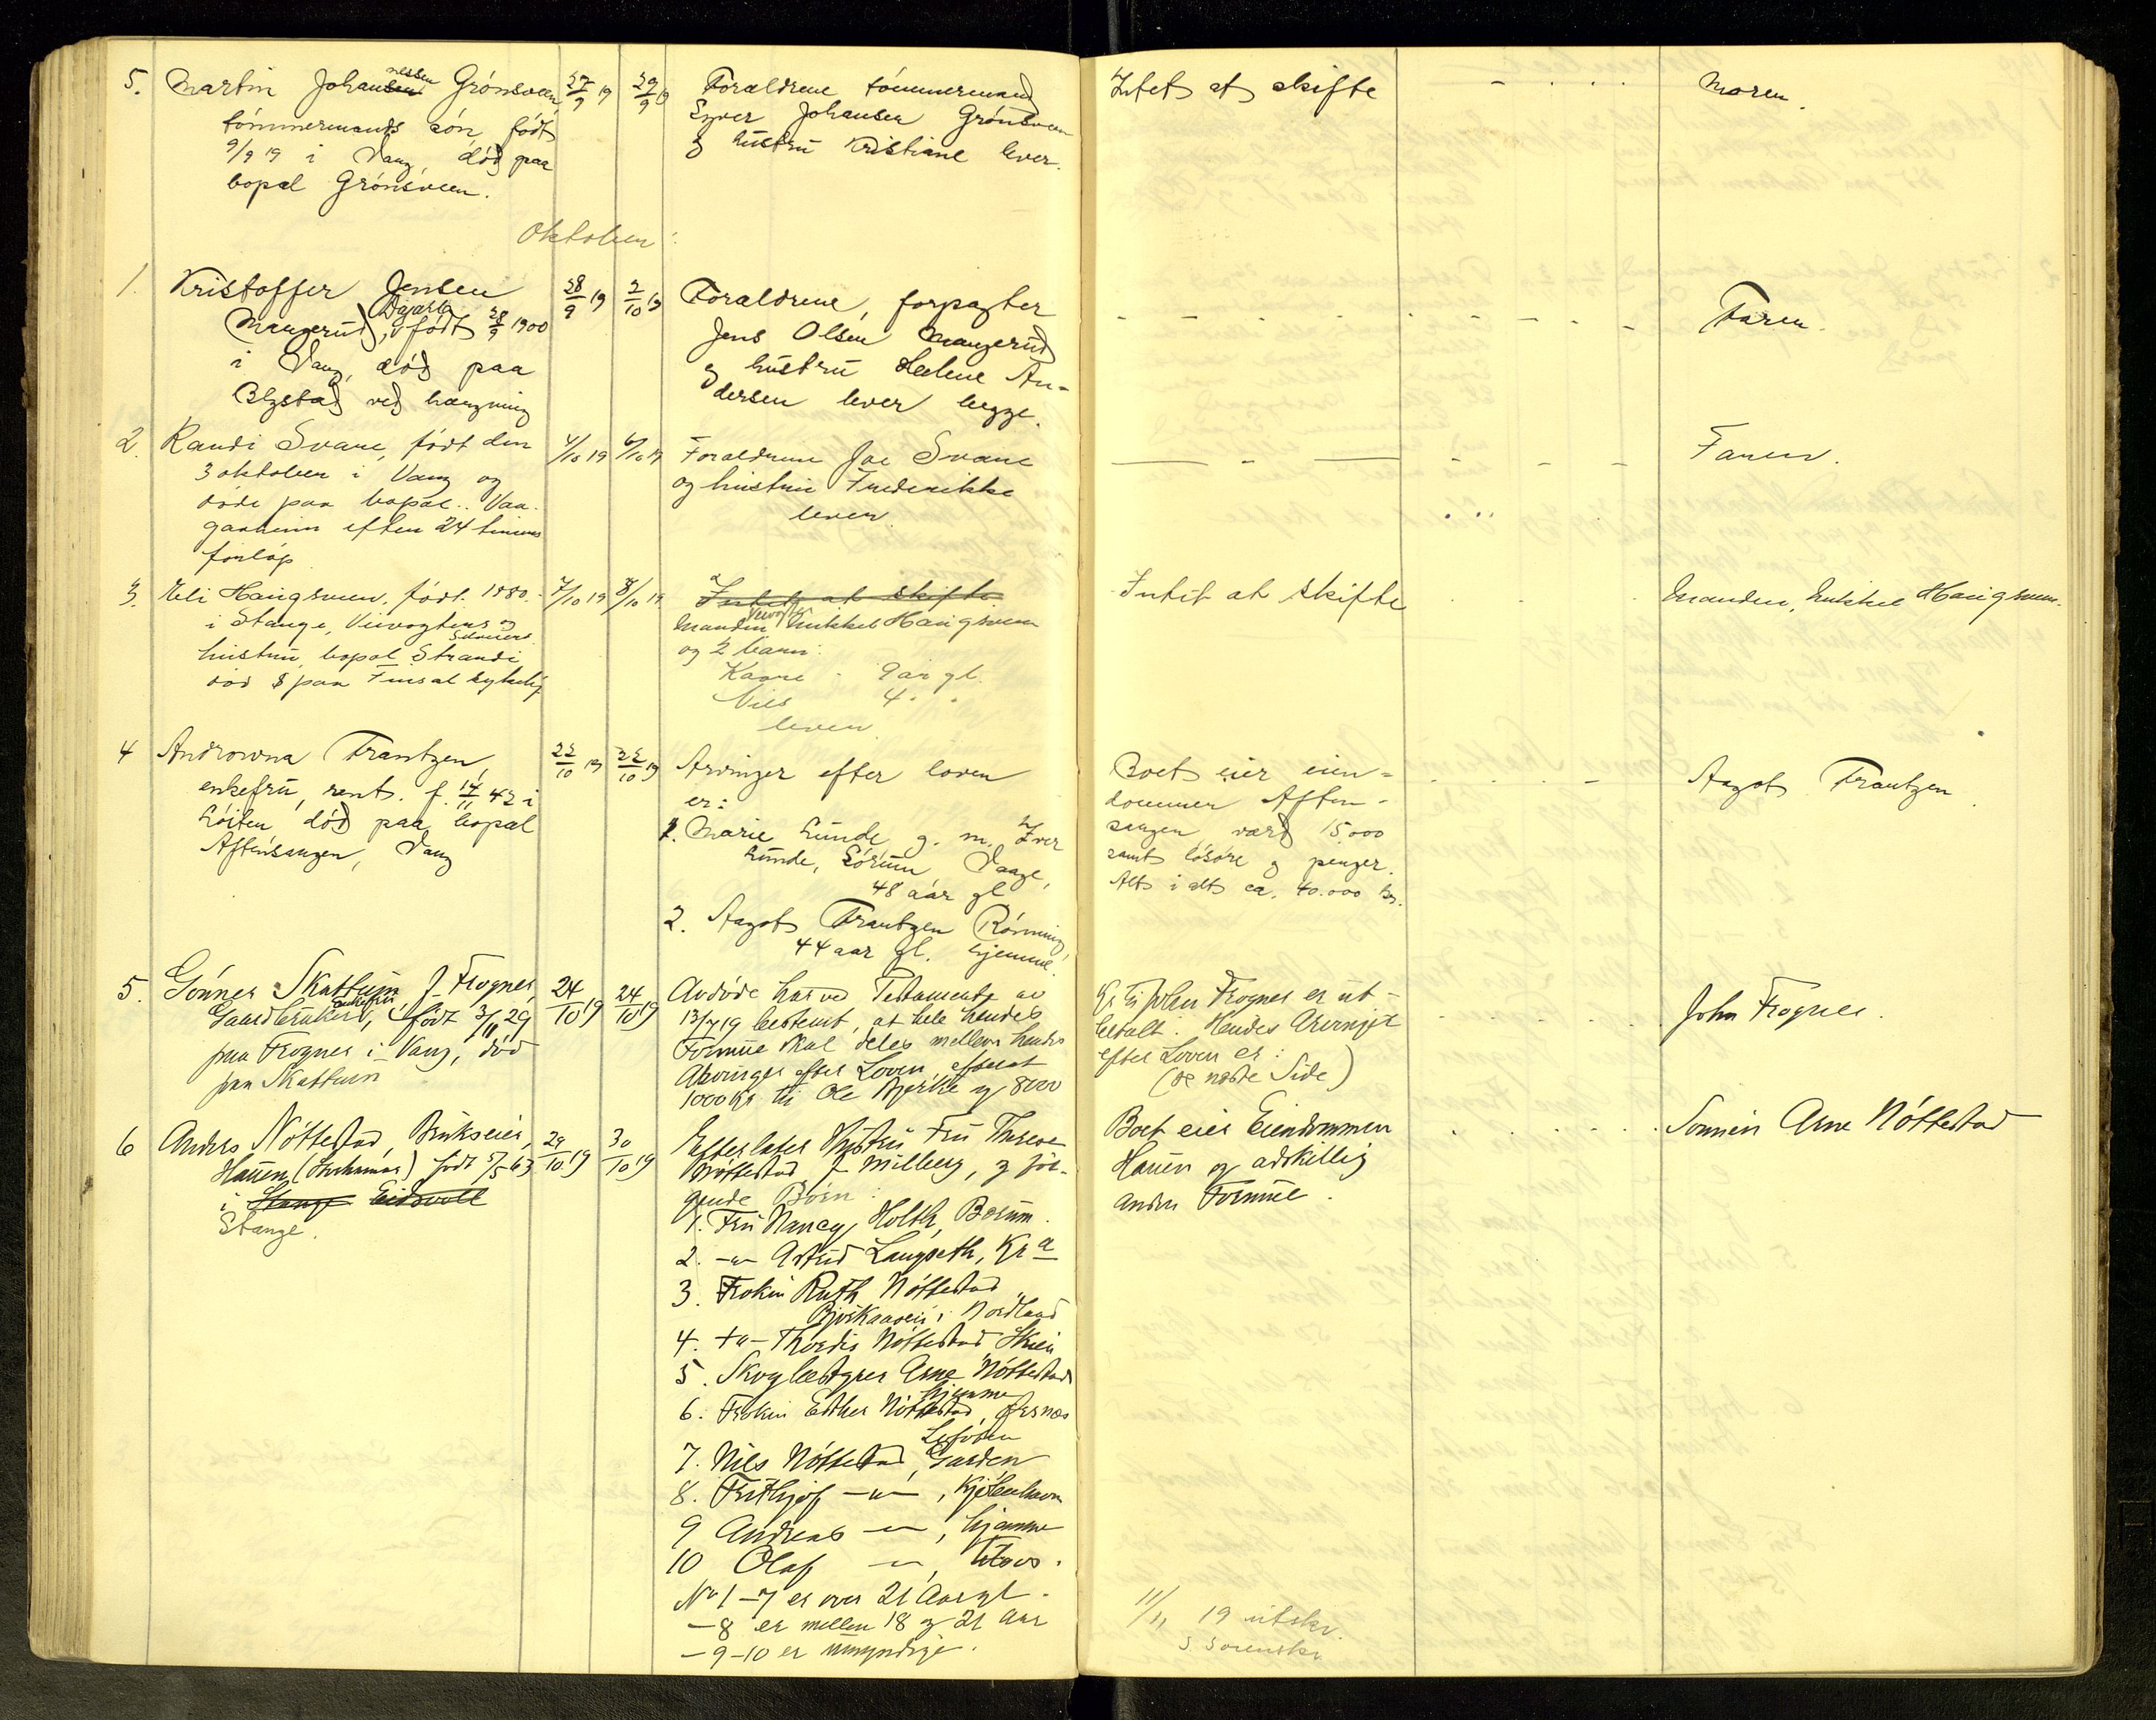 5. Martin Johannessen Grönsveen
tömmermands sön, födt
9/9 19 i Vang, död paa
bopæl Grönsveen.
27/9 19
29/9 19
Forældrene tömmermand
Syver Johansen Grönsveen
og hustru Kristiane lever.
Intet at skifte
Moren.
Oktober:
1. Kristoffer Jensen
Mangerud, födt 28/9 1900
i Vang, död paa
Blystad ved hængning
28/9 19
2/10 19
Forældrene, forpagter
Jens Olsen Mangerud
og hustru Helene An-
dersen lever begge.
Faren.
2. Randi Svane, födt den
3 oktober i Vang og
döde paa bopæl
efter 24 timers
forlöp
4/10 19
6/10 19
Forældrene Joe Svane
og hustru Frederikke
lever
Faren.
3. Eli Haugsveen, födt 1880
i Stange, Veivogters og
hustru, bopæl Strandi
död paa
7/10 19
8/10 19
Intet at skifte
Manden Mikkel Haugsveen
og 2 barn:
Kaare - 9 aar gl.
Nils 4 " "
lever
Intet at skifte
Manden, Mikkel Haugsveen.
4 Androvna Frantzen,
enkefru, rent. f. 14/11 42 i
Löiten, död paa bopæl
Aftensangen, Vang
22/10 19
22/10 19
Arvinger efter loven
er:
1. Marie Lunde g. m. Iver
Lunde, Sörum, Vaage,
48 aar gl
2. Aagot Frantzen Rönning,
44 aar gl. hjemme.
Boet eier eien-
dommen Aften-
sangen værd 15.000
samt lösöre og penger.
Alt i alt ca. 40.000 kr.
Aagot Frantzen.
5. Gönner Skattum f. Frogner,
Gaardbruker, enkefru, födt 3/11 29
paa Frogner i Vang, död
paa Skattum
24/10 19
24/10 19
Avdöde har ved Testamente av
13/7 19 bestemt, at hele hendes
Formue skal deles mellem hendes
Arvinger efter Loven, efterat
1000 kr til Ole Bjerke og 8000
Kr til John Frogner er ut-
betalt. Hendes Arvinger
efter Loven er:
(se næste Side)
John Frogner.
6 Anders Nöttestad, Brukseier,
Hauen, födt 5/5 63
i Stange Eidsvoll
Stange.
29/10 19
30/10 19
Efterlater Hustru Fru Therese
Nöttestad f. Milberg, og föl-
gende Börn:
1. Fru Nancy Holth, Bærum.
2. -"- Astrid Langseth, Kr a
3. Fröken Ruth Nöttestad
Björkaasen i Nordland
4. -"- Thordis Nöttestad Skien
5. Skogbestyrer Arne Nöttestad
hjemme
6. Fröken Esther Nöttestad,
7. Nils Nöttestad,
8. Frithjof -"-, Kjöbenhavn
9 Andreas -"-, hjemme
10 Olaf -"-,
No 1-7 er over 21 Aar gl.
-8 er mellem 18 og 21 Aar
-9-10 er umyndige.
Boet eier Eiendommen
Hauen og adskillig
anden Formue.
Sönnen Arne Nöttestad
11/11 19 utskr.
s. Sorenskr.